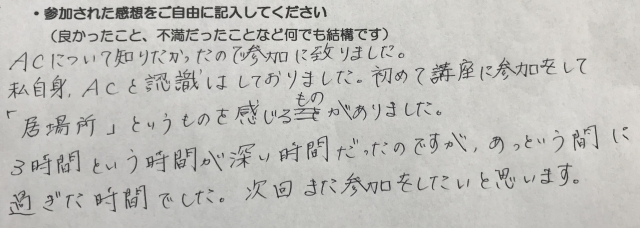 ・参加された感想をご自由に記入してください
（良かったこと、不満だったことなど何でも結構です）
ACについて知りたかったので参加に致りました。
私自身、ACと認識はしておりました。初めて講座に参加をして
「居場所」というものを感じるものがありました。
3時間という時間が深い時間だったのですが、あっという間に
過ぎた時間でした。次回また参加をしたいと思います。